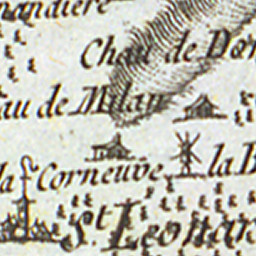 mandiere
Chau de Dom
au de Milan
la Corneuve la B
S.t Leonar